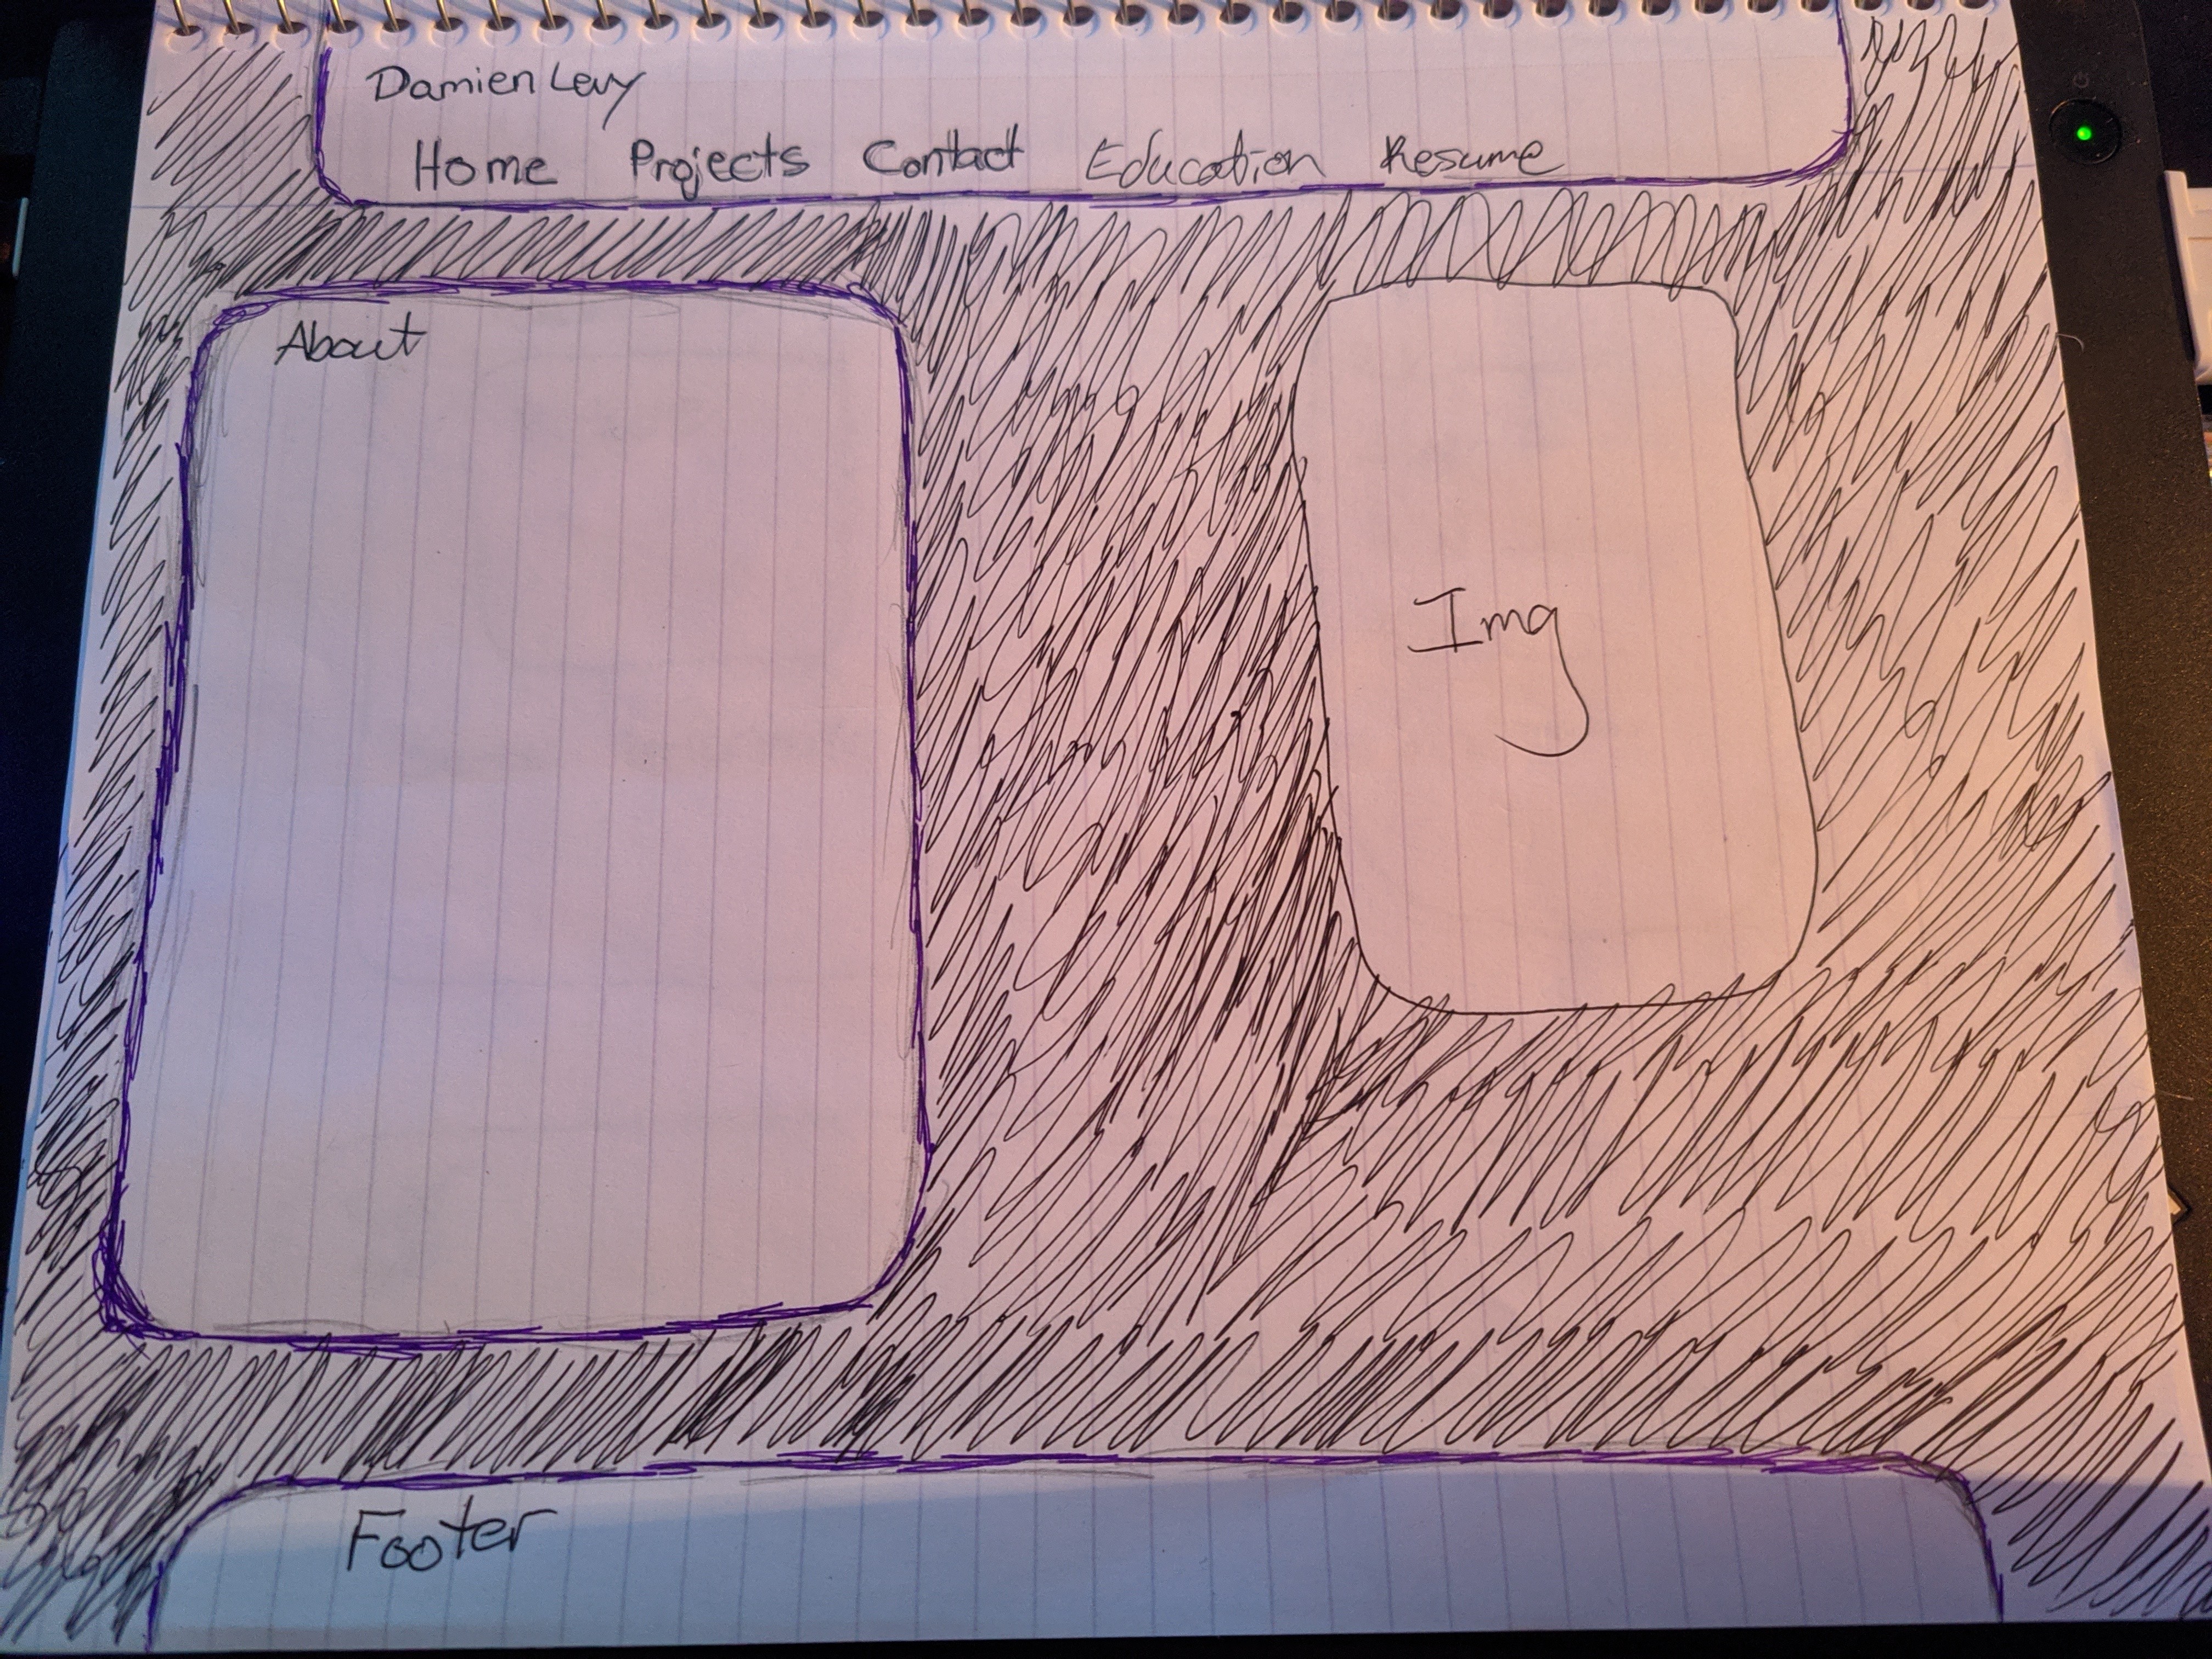 Damien Levy
Home Projects Contact Education Resume
About
Img
Footer